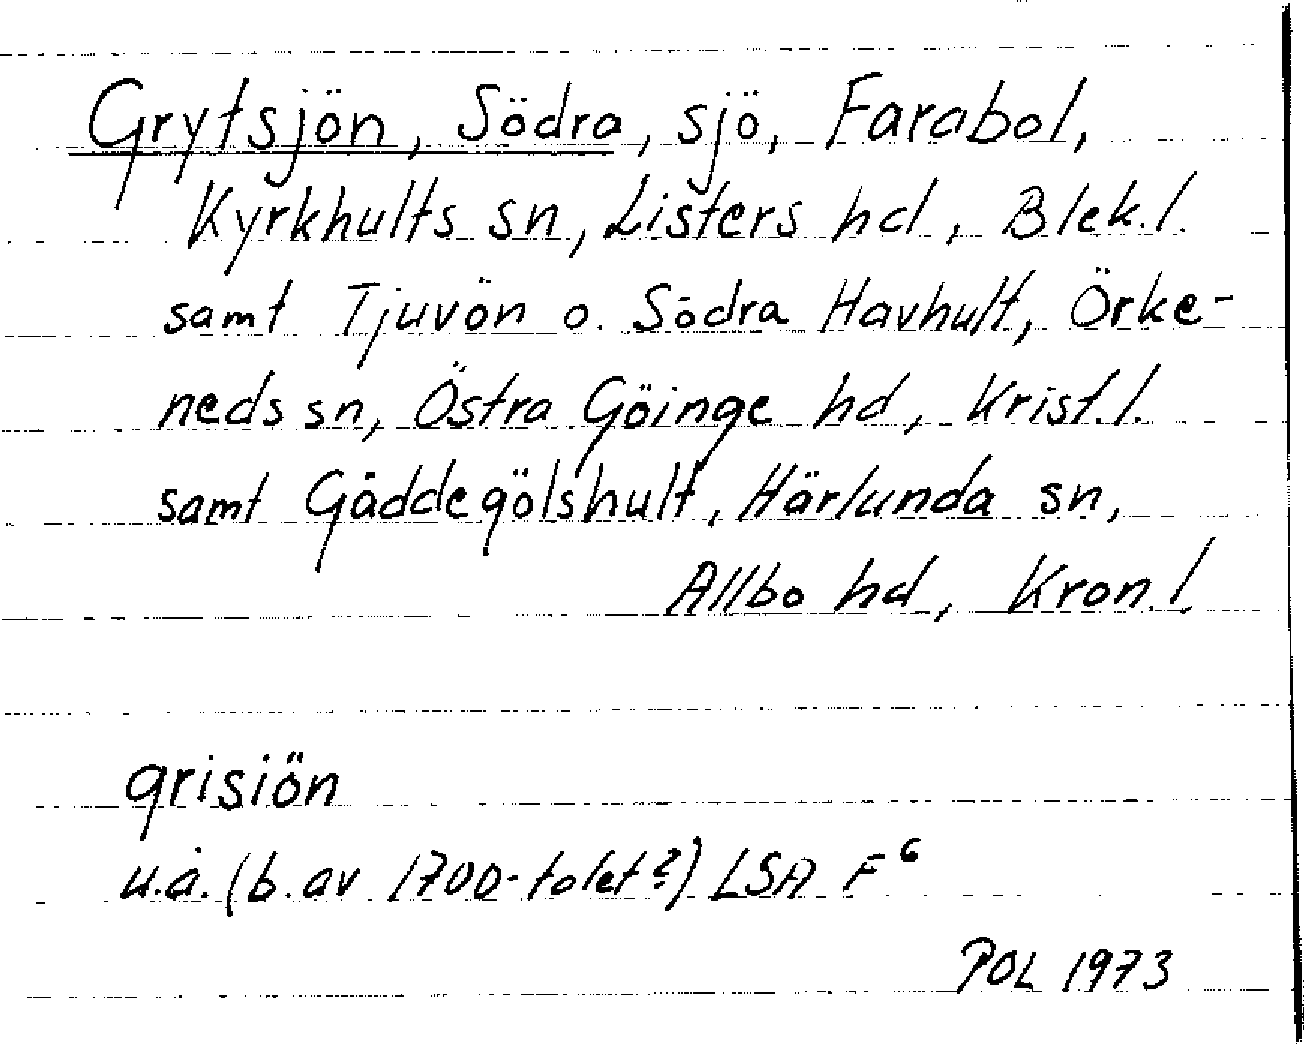 Grytsjön, Södra, sjö, Farabol,
Kyrkhults sn, Listers hd, Blek.l.
samt Tjuvön o. Södra Havhult, Örke-
neds sn, Östra Göinge hd, Krist.l.
samt Gäddegölshult, Härlunda sn,
Allbo hd, Kron.l.
grisiön
u.å. (b. av 1700-talet?) LSA F⁶
POL 1973